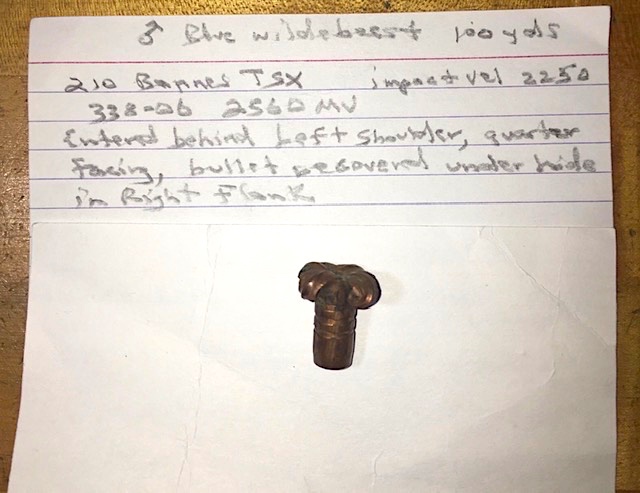 ♂ Blue wildebeest 100 yds
210 Barnes TSX impact vel 2250
338-06 2560 MV
Entered behind Left shoulder, quarter
facing, bullet recovered under hide
in Right Flank